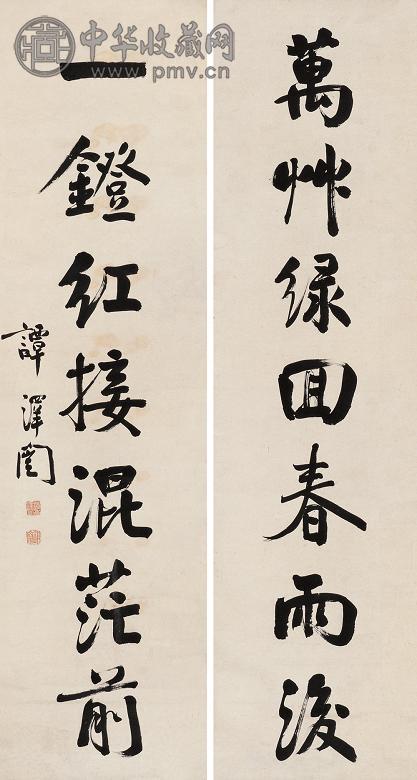 萬艸綠回春雨後
一鐙紅接混茫前
譚澤闓
中华收藏网
www.pmv.cn